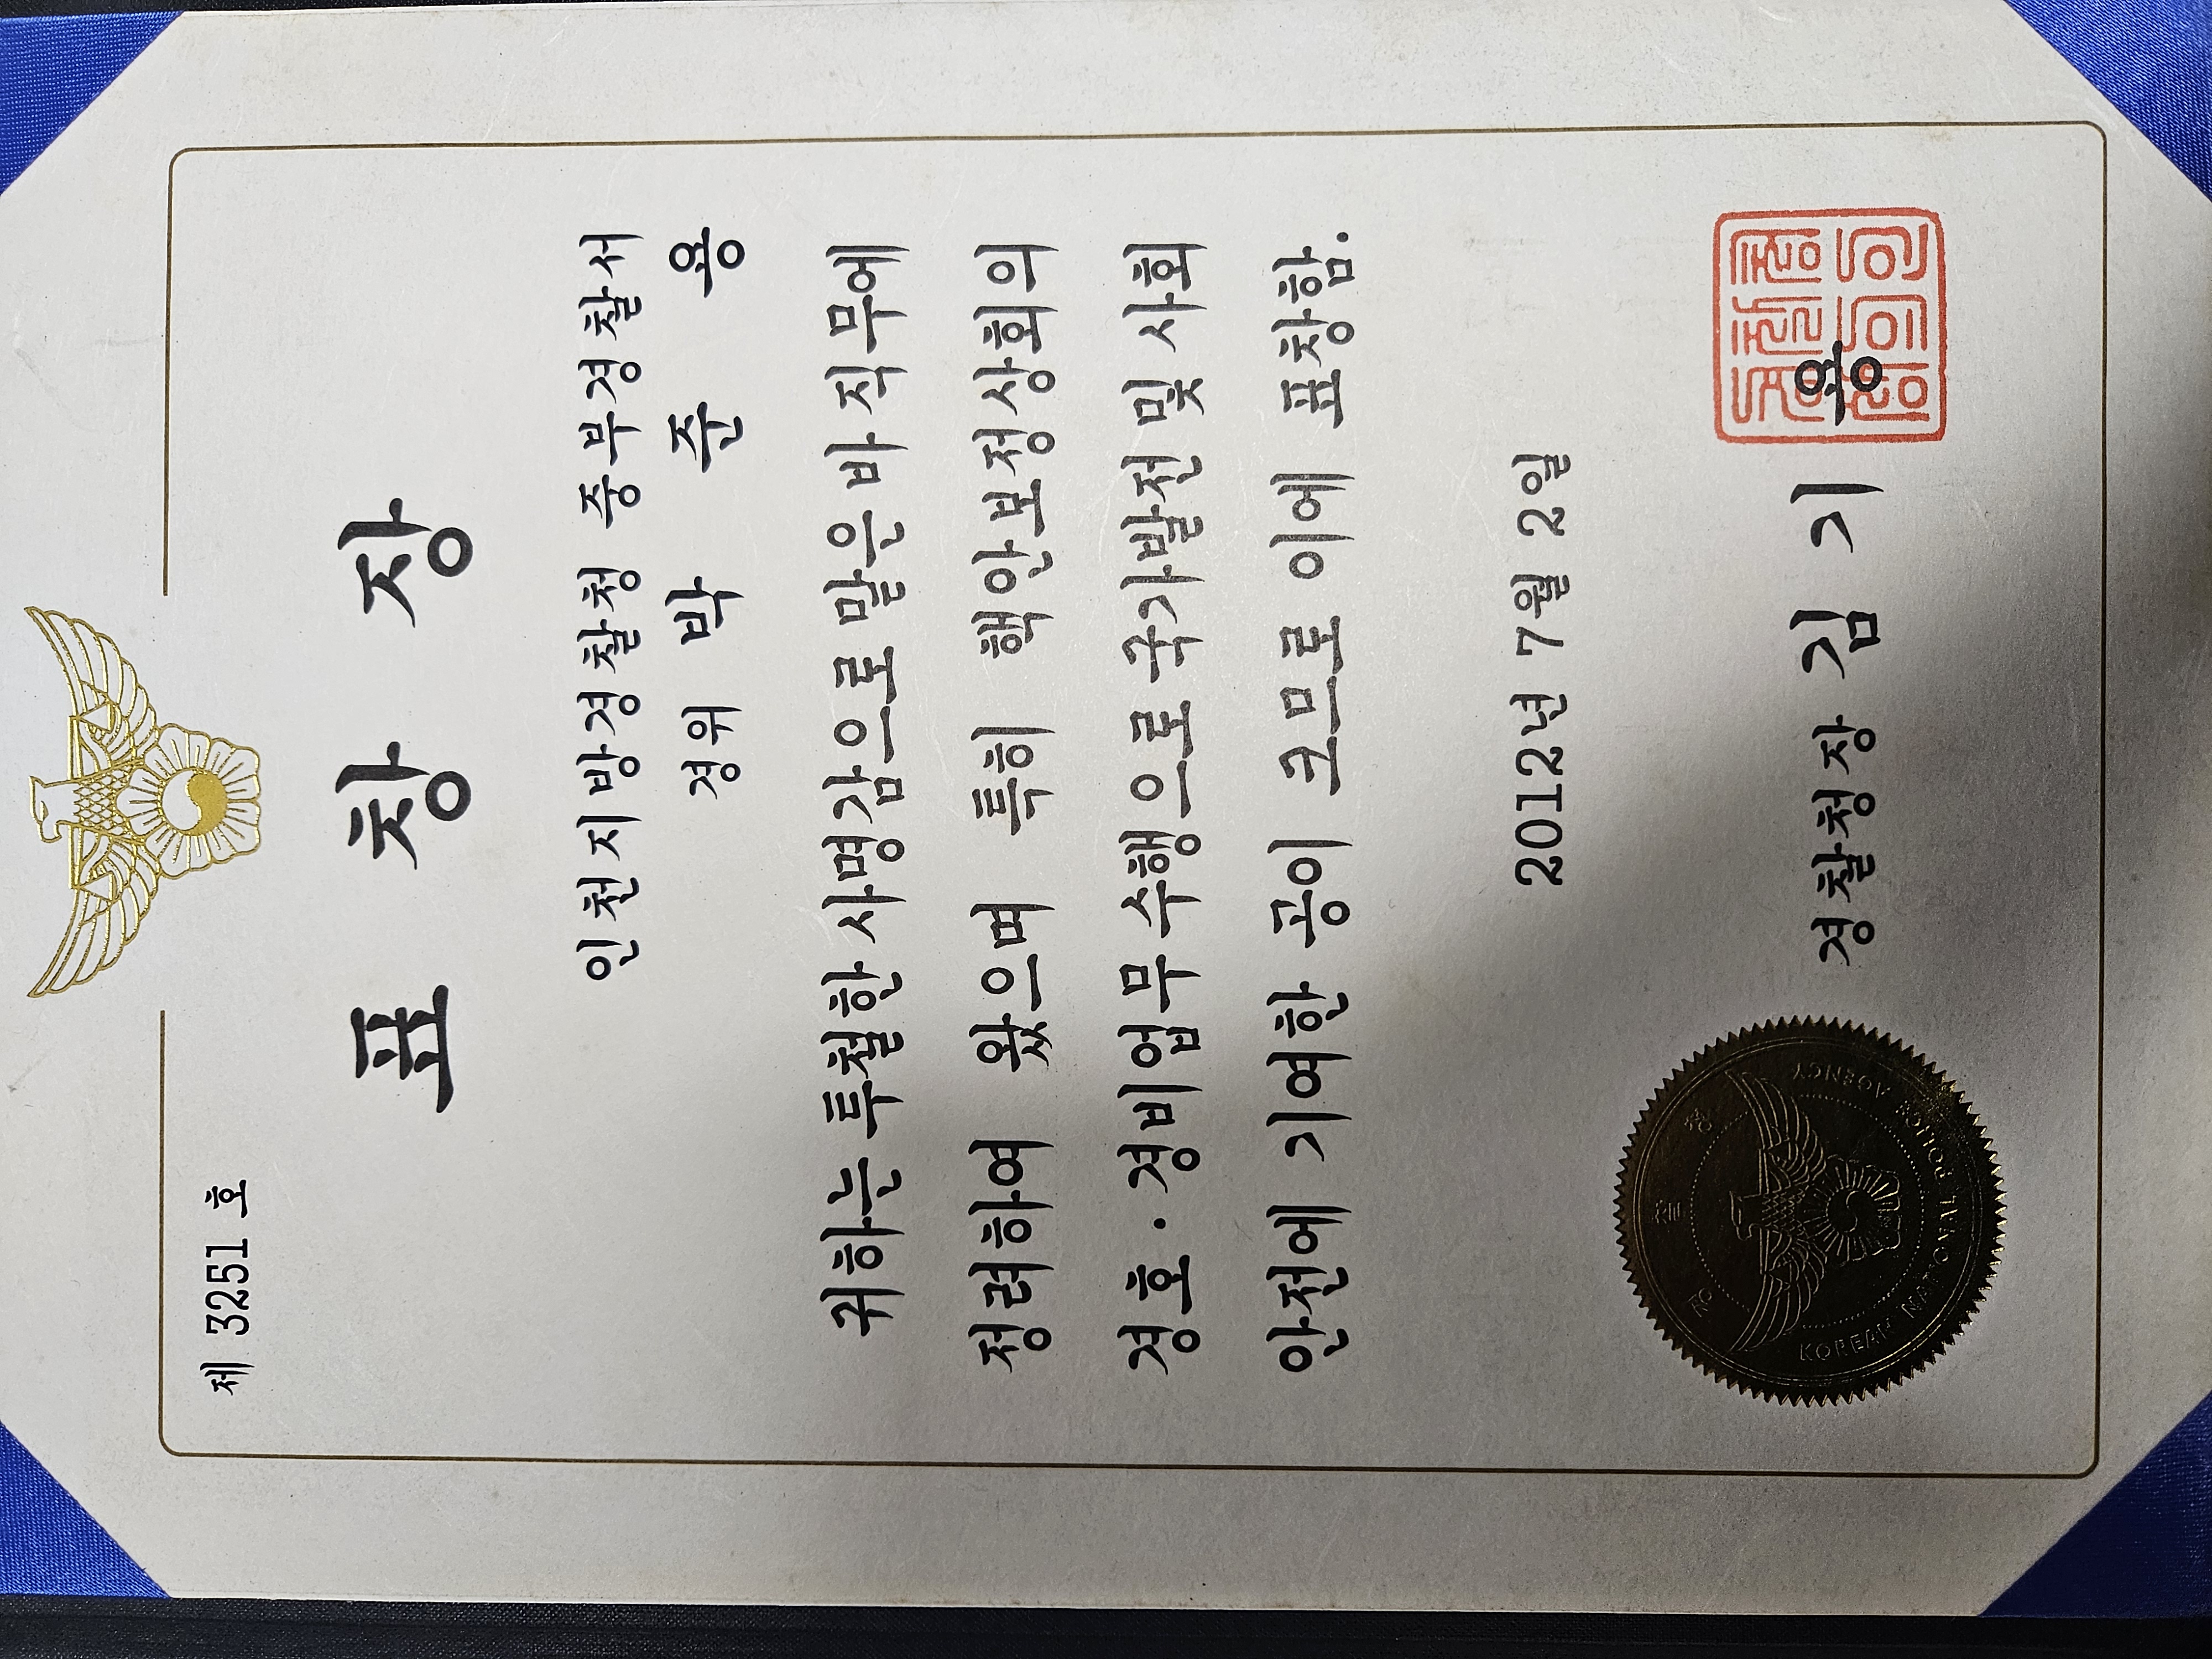 제 3251 호
표 창 장
인천지방경찰청 중부경찰서
경위 박 준 용
귀하는 투철한 사명감으로 맡은 바 직무에
정려하여 왔으며 특히 핵안보정상회의
경호·경비업무 수행으로 국가발전 및 사회
안전에 기여한 공이 크므로 이에 표창함.
2012년 7월 2일
경찰청장 김 기 용
경 찰 청
KOREAN NATIONAL POLICE AGENCY